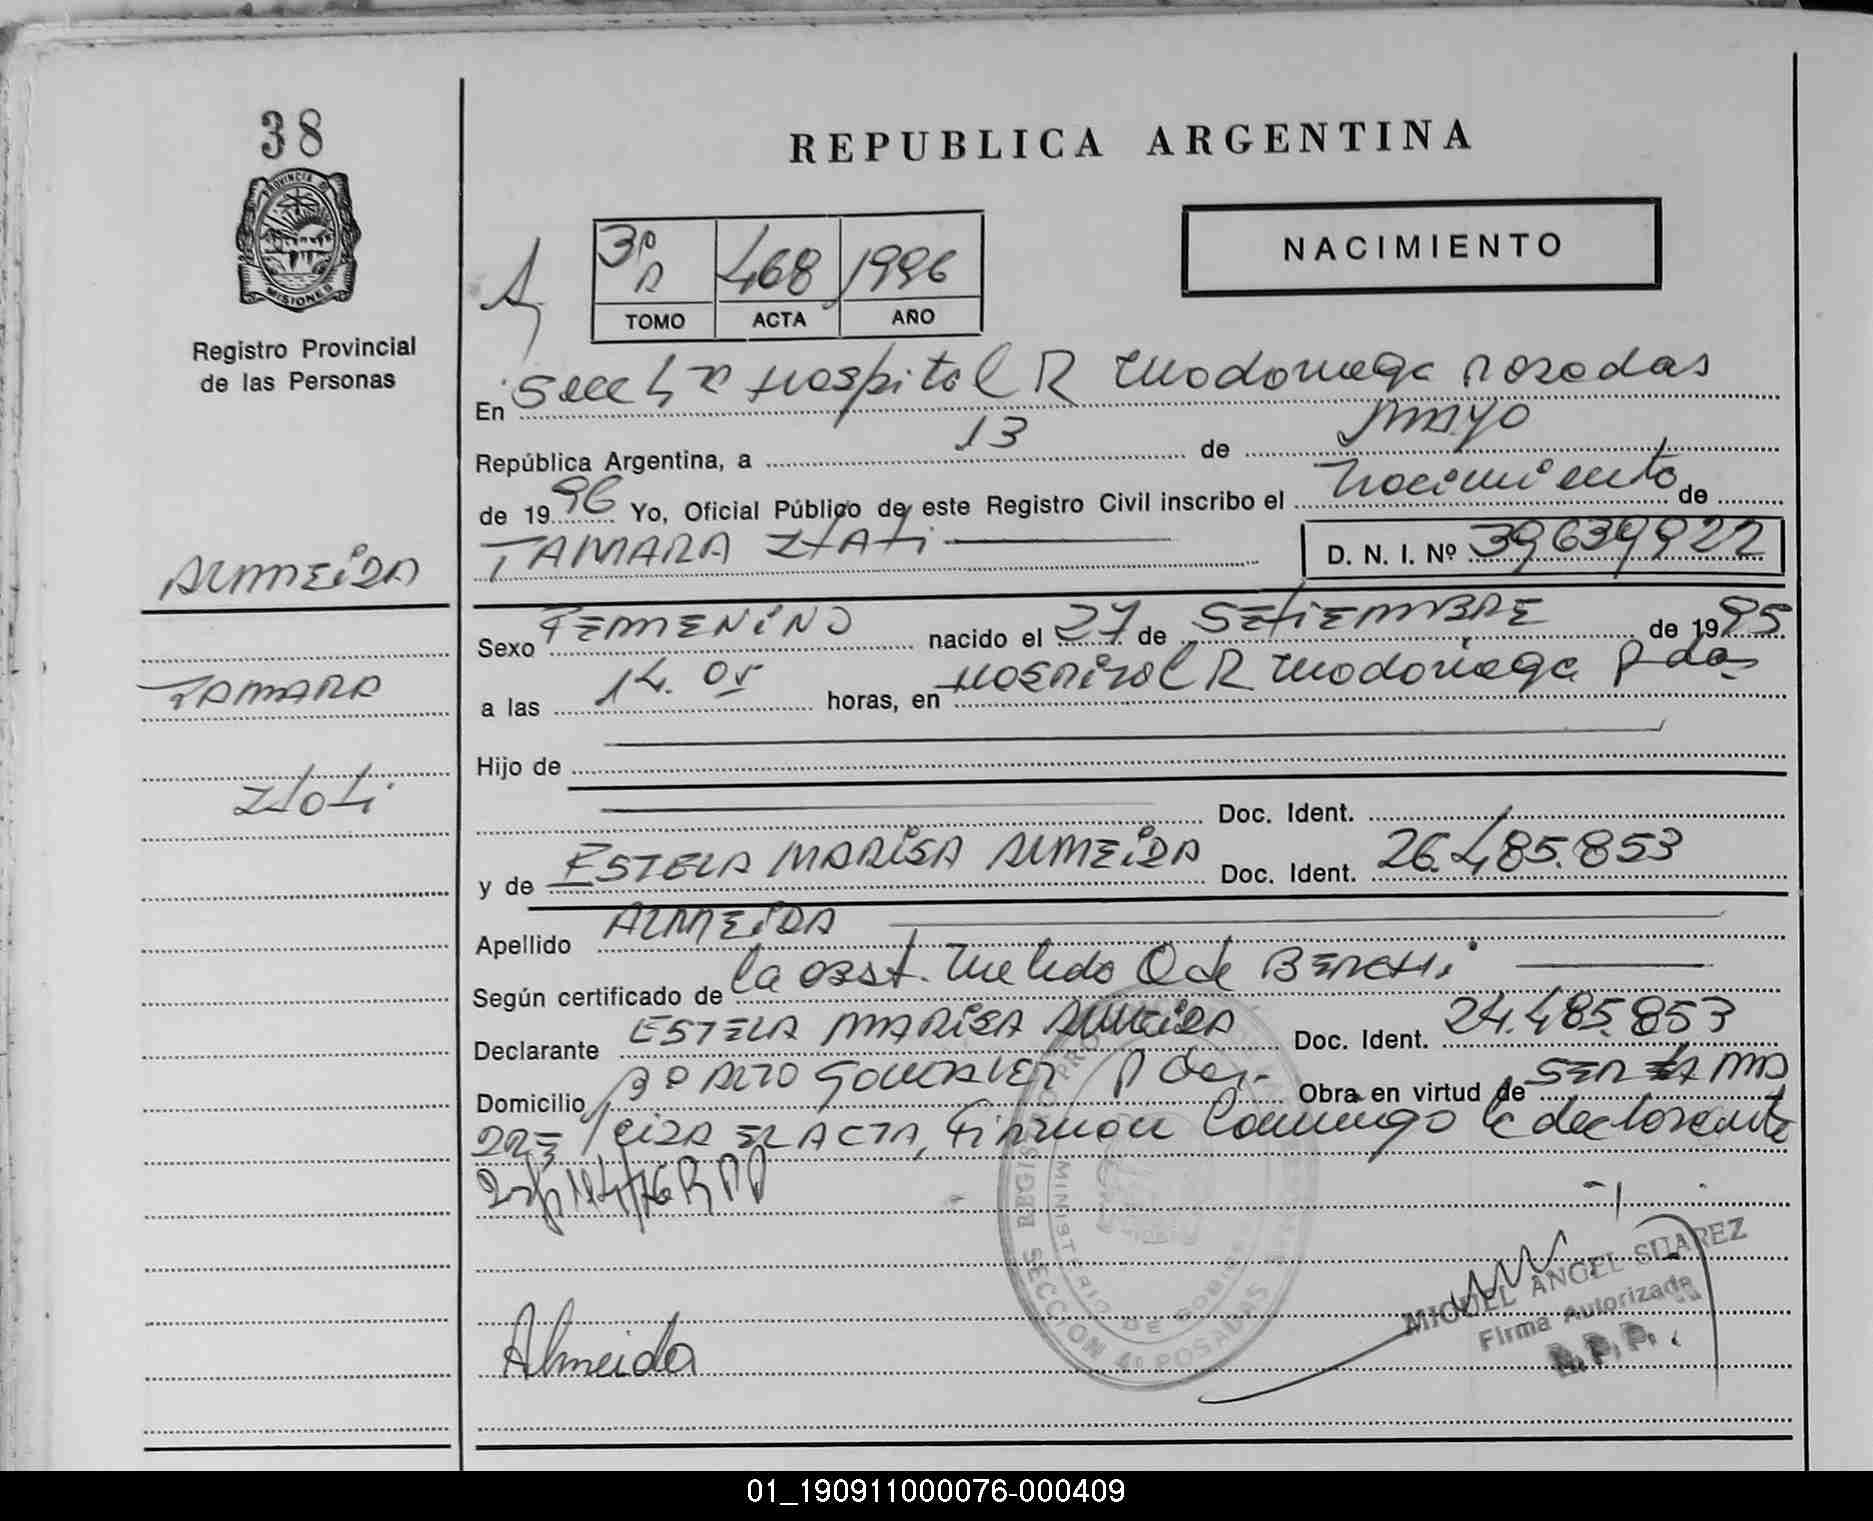 38
PROVINCIA DE
MISIONES
Registro Provincial
de las Personas
REPUBLICA ARGENTINA
NACIMIENTO
3º A 468 1996
TOMO ACTA AÑO
En Secc 4ª Hospital R Madariaga Posadas
República Argentina, a 13 de mayo
de 1996 Yo, Oficial Público de este Registro Civil inscribo el Nacimiento de
TAMARA ITATI D. N. I. Nº 39639922
ALMEIDA
Sexo FEMENINO nacido el 27 de SETIEMBRE de 1995
TAMARA
a las 14.05 horas, en HOSPITAL R Madariaga Pdas
Itati
Hijo de
Doc. Ident.
y de ESTELA MARISA ALMEIDA Doc. Ident. 26.485.853
Apellido ALMEIDA
Según certificado de la obst. Q de
Declarante ESTELA MARISA ALMEIDA Doc. Ident. 24.485.853
Domicilio Bº ALTO GONZALEZ Pdas- Obra en virtud de SER LA MA
DRE leida EL ACTA, Firman Conmigo la declarante
REGISTRO
MINISTERIO DE GOBIERNO
SECCION 4º POSADAS
MIGUEL ANGEL SUAREZ
Firma Autorizada
R.P.P.
Almeida
01_190911000076-000409